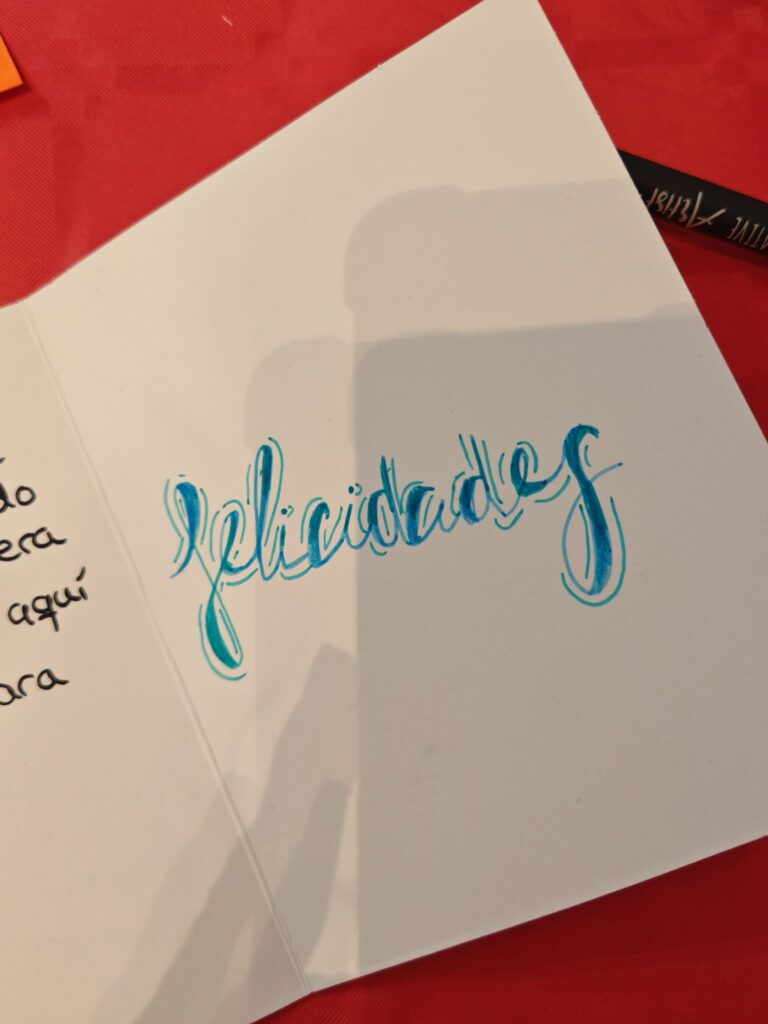 do
era
aquí
ara
felicidades
ATIVE Artist